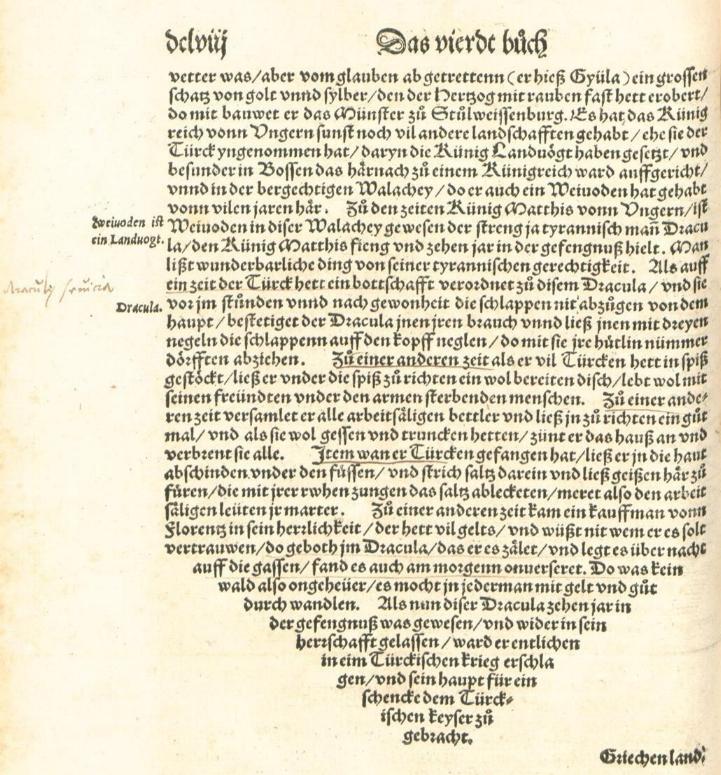 dclviij Das vierdt bůch
vetter was/aber vom glauben abgetrettenn (er hieß Gyüla) ein grossen
schatz von golt vnnd sylber/den der Hertzog mit rauben fast hett erobert/
do mit bauwet er das Münster zů Stůlweissenburg. Es hat das Künig
reich vonn Vngern sunst noch vil andere landschafften gehabt/ehe sie der
Türck yngenommen hat/daryn die Künig Landuögt haben gesetzt/vnd
besunder in Bossen das härnach zů einem Künigreich ward auffgericht/
vnnd in der bergechtigen Walachey/do er auch ein Weiuoden hat gehabt
vonn vilen jaren här. Zů den zeiten Künig Matthis vonn Vngern/ist
Weiuoden ist
ein Landuogt.
Weiuoden in diser Walachey gewesen der streng ja tyrannisch mañ Dracu
la/den Künig Matthis fieng vnd zehen jar in der gefengnuß hielt. Man
lißt wunderbarliche ding von seiner tyrannischen gerechtigkeit. Als auff
ein zeit der Türck hett ein bottschafft verordnet zů disem Dracula/vnd sie
Dracula.
vor jm stůnden vnnd nach gewonheit die schlappen nit abzügen von dem
haupt/bestetiget der Dracula jnen jren brauch vnnd ließ jnen mit dreyen
negeln die schlappenn auff den kopff neglen/do mit sie jre hütlin nümmer
dörfften abziehen. Zů einer anderen zeit als er vil Türcken hett in spiß
gestöckt/ließ er vnder die spiß zů richten ein wol bereiten disch/lebt wol mit
seinen freündten vnder den armen sterbenden menschen. Zů einer ande-
ren zeit versamlet er alle arbeitsäligen bettler vnd ließ jn zů richten ein gůt
mal/vnd als sie wol gessen vnd truncken hetten/zünt er das hauß an vnd
verbrent sie alle. Item wan er Türcken gefangen hat/ließ er jn die haut
abschinden vnder den füssen/vnd strich saltz darein vnd ließ geißen här zů
füren/die mit jrer rwhen zungen das saltz ableckеten/meret also den arbeit
säligen leüten jr marter. Zů einer anderen zeit kam ein kauffman vonn
Florentz in sein herrlichkeit/der hett vil gelts/vnd wüßt nit wem er es solt
vertrauwen/do geboth jm Dracula/das er es zälet/vnd legt es über nacht
auff die gassen/fand es auch am morgenn onuerseret. Do was kein
wald also ongeheüer/es mocht in jederman mit gelt vnd gůt
durch wandlen. Als nun diser Dracula zehen jar in
der gefengnuß was gewesen/vnd wider in sein
herrschafft gelassen/ward er entlichen
in eim Türckischen krieg erschla
gen/vnd sein haupt für ein
schencke dem Türck-
ischen keyser zů
gebracht.
Griechenland.